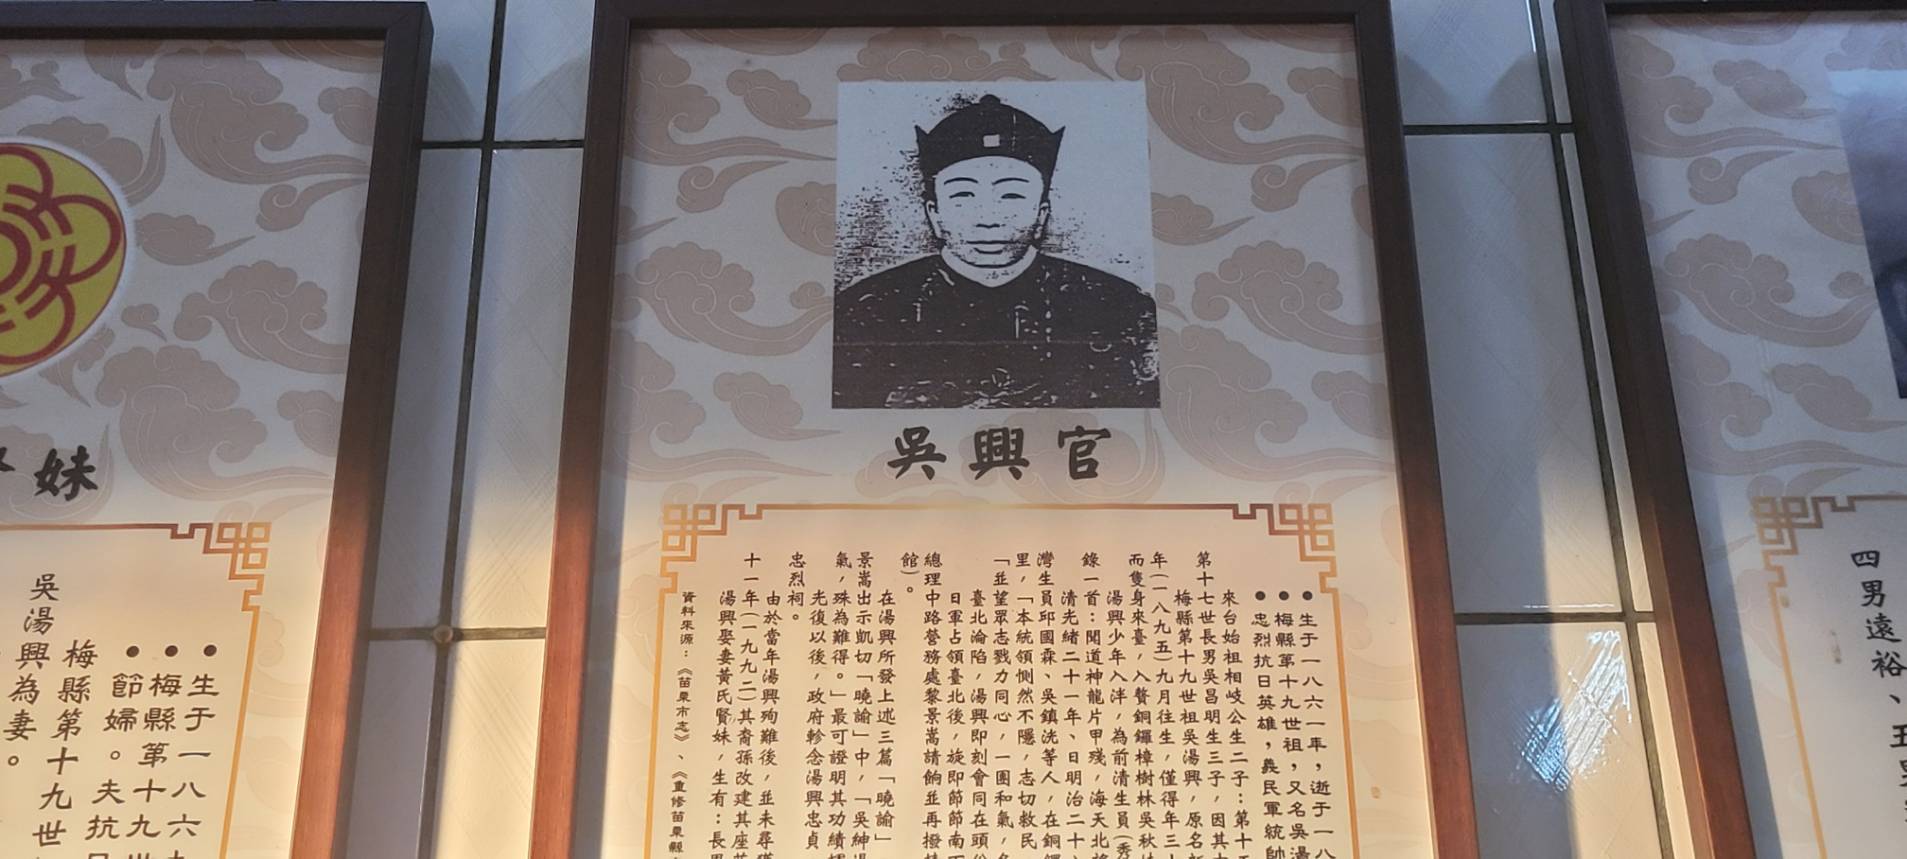 吳興官
●生于一八六一年，逝于一八
●梅縣第十九世祖，又名吳湯
●忠烈抗日英雄，義民軍統帥
來台始祖相岐公生二子：第十五
第十七世長男吳昌明生三子，因其
梅縣第十九世祖吳湯興，原名
年(一八九五)九月往生，僅得年三十
而隻身來臺，入贅銅鑼樟樹林吳秋
湯興少年入泮，為前清生員(秀
錄一首：聞道神龍片甲殘，海天北
清光緒二十一年、日明治二十
灣生員邱國霖、吳鎮洸等人，在銅鑼
里，「本統領惻然不隱，志切救民
「並望眾志戮力同心，一團和氣，
臺北淪陷，湯興即刻會同在頭份
日軍占領臺北後，旋即節節南下
總理中路營務處黎景嵩請餉並再撥
館)。
在湯興所發上述三篇「曉諭」
景嵩出示凱切「曉諭」中，「吳紳湯
氣，殊為難得。」最可證明其功績
光復以後，政府軫念湯興忠貞
忠烈祠。
由於當年湯興殉難後，並未尋獲
十一年(一九九二)其裔孫改建其座
湯興娶妻黃氏賢妹，生有：長男
資料來源：《苗栗市志》、《重修苗栗縣
妹
●生于一八六
●梅縣第十九世
●節婦。夫抗日
梅縣第十九世
吳湯興為妻。
四男遠裕、五男